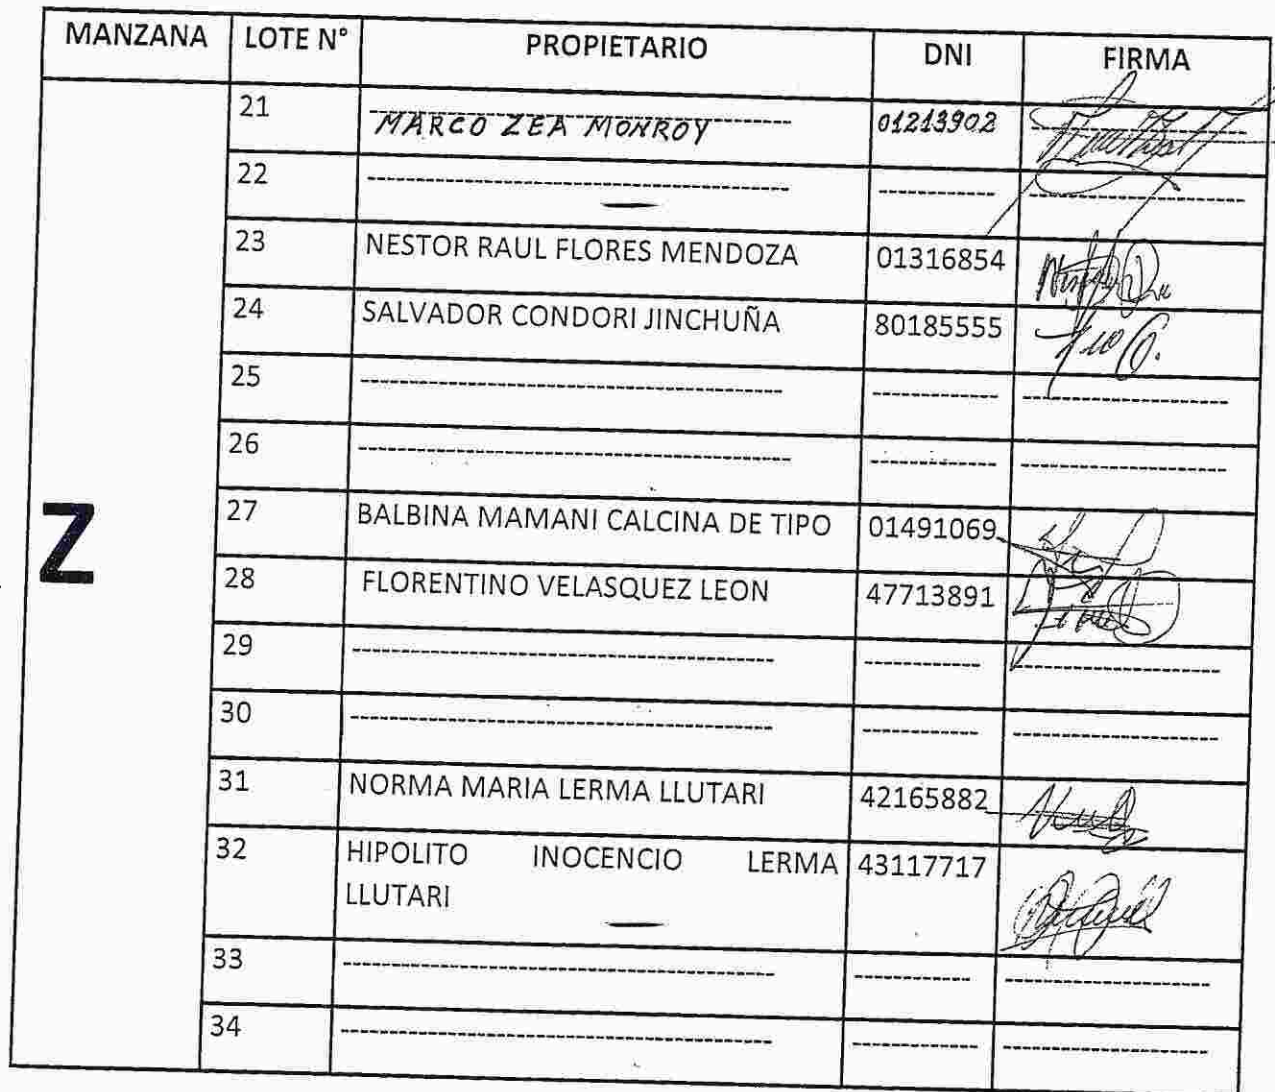 MANZANA LOTE N° PROPIETARIO DNI FIRMA
Z
21 MARCO ZEA MONROY 01213902
22 ---------- ---------- ----------
23 NESTOR RAUL FLORES MENDOZA 01316854
24 SALVADOR CONDORI JINCHUÑA 80185555
25 ---------- ---------- ----------
26 ---------- ---------- ----------
27 BALBINA MAMANI CALCINA DE TIPO 01491069
28 FLORENTINO VELASQUEZ LEON 47713891
29 ---------- ---------- ----------
30 ---------- ---------- ----------
31 NORMA MARIA LERMA LLUTARI 42165882
32 HIPOLITO INOCENCIO LERMA 43117717
LLUTARI
33 ---------- ---------- ----------
34 ---------- ---------- ----------